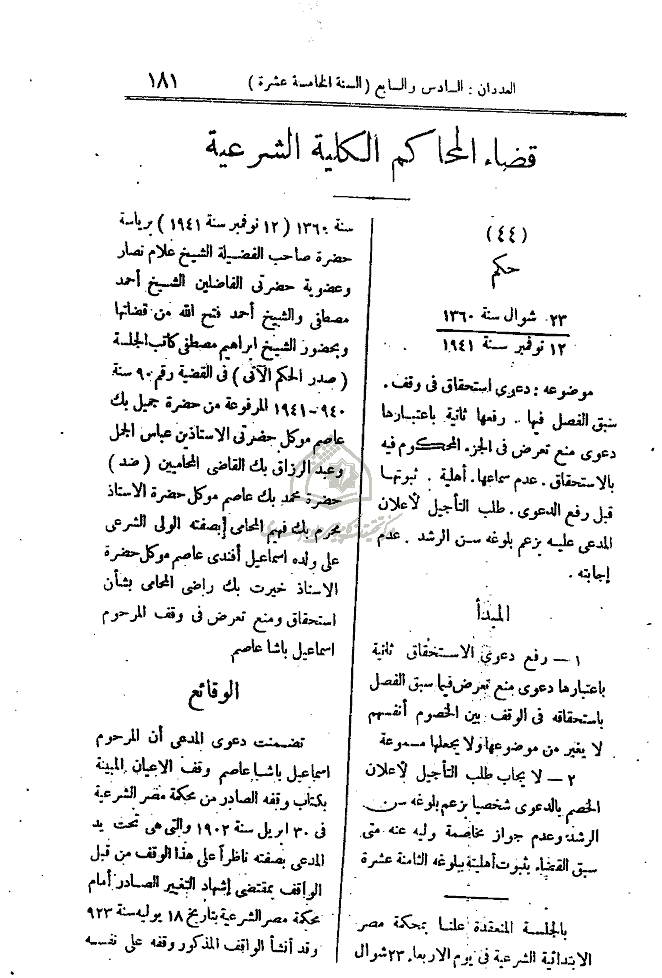 العددان : السادس والسابع ( السنة الخامسة عشرة ) ١٨١
قضاء المحاكم الكلية الشرعية
( ٤٤ )
حكم
٢٣ شوال سنة ١٣٦٠
١٢ نوفمبر سنة ١٩٤١
موضوعه : دعوى استحقاق فى وقف .
سبق الفصل فيها . رفعها ثانية باعتبارها
دعوى منع تعرض فى الجزء المحكوم فيه
بالاستحقاق . عدم سماعها . أهلية . ثبوتها
قبل رفع الدعوى . طلب التأجيل لأعلان
المدعى عليه بزعم بلوغه سن الرشد . عدم
إجابته .
المبدأ
١ — رفع دعوى الاستحقاق ثانية
باعتبارها دعوى منع تعرض فيما سبق الفصل
باستحقاقه فى الوقف بين الخصوم أنفسهم
لا يغير من موضوعها ولا يجعلها مسموعة
٢ — لا يجاب طلب التأجيل لأعلان
الخصم بالدعوى شخصيا بزعم بلوغه سن
الرشد وعدم جواز مخاصمة وليه عنه متى
سبق القضاء بثبوت أهليته ببلوغه الثامنة عشرة
بالجلسة المنعقدة علنا بمحكمة مصر
الابتدائية الشرعية فى يوم الاربعاء ٢٣ شوال
سنة ١٣٦٠ ( ١٢ نوفمبر سنة ١٩٤١ ) برياسة
حضرة صاحب الفضيلة الشيخ علام نصار
وعضوية حضرتى الفاضلين الشيخ أحمد
مصطفى والشيخ أحمد فتح الله من قضاتها
وبحضور الشيخ ابراهيم مصطفى كاتب الجلسة
( صدر الحكم الآتى ) فى القضية رقم ٩٠ سنة
٩٤٠–١٩٤١ المرفوعة من حضرة جميل بك
عاصم موكل حضرتى الاستاذين عباس الجمل
وعبد الرزاق بك القاضى المحاميين ( ضد )
حضرة محمد بك عاصم موكل حضرة الاستاذ
محرم بك فهيم المحامى بصفته الولى الشرعى
على ولده اسماعيل أفندى عاصم موكل حضرة
الاستاذ خيرت بك راضى المحامى بشأن
استحقاق ومنع تعرض فى وقف المرحوم
اسماعيل باشا عاصم
الوقائع
تضمنت دعوى المدعى أن المرحوم
اسماعيل باشا عاصم وقف الاعيان المبينة
بكتاب وقفه الصادر من محكمة مصر الشرعية
فى ٣٠ ابريل سنة ١٩٠٢ والتى هى تحت يد
المدعى بصفته ناظراً على هذا الوقف من قبل
الواقف بمقتضى إشهاد التغيير الصادر أمام
محكمة مصر الشرعية بتاريخ ١٨ يوليه سنة ٩٢٣
وقد أنشأ الواقف المذكور وقفه على نفسه